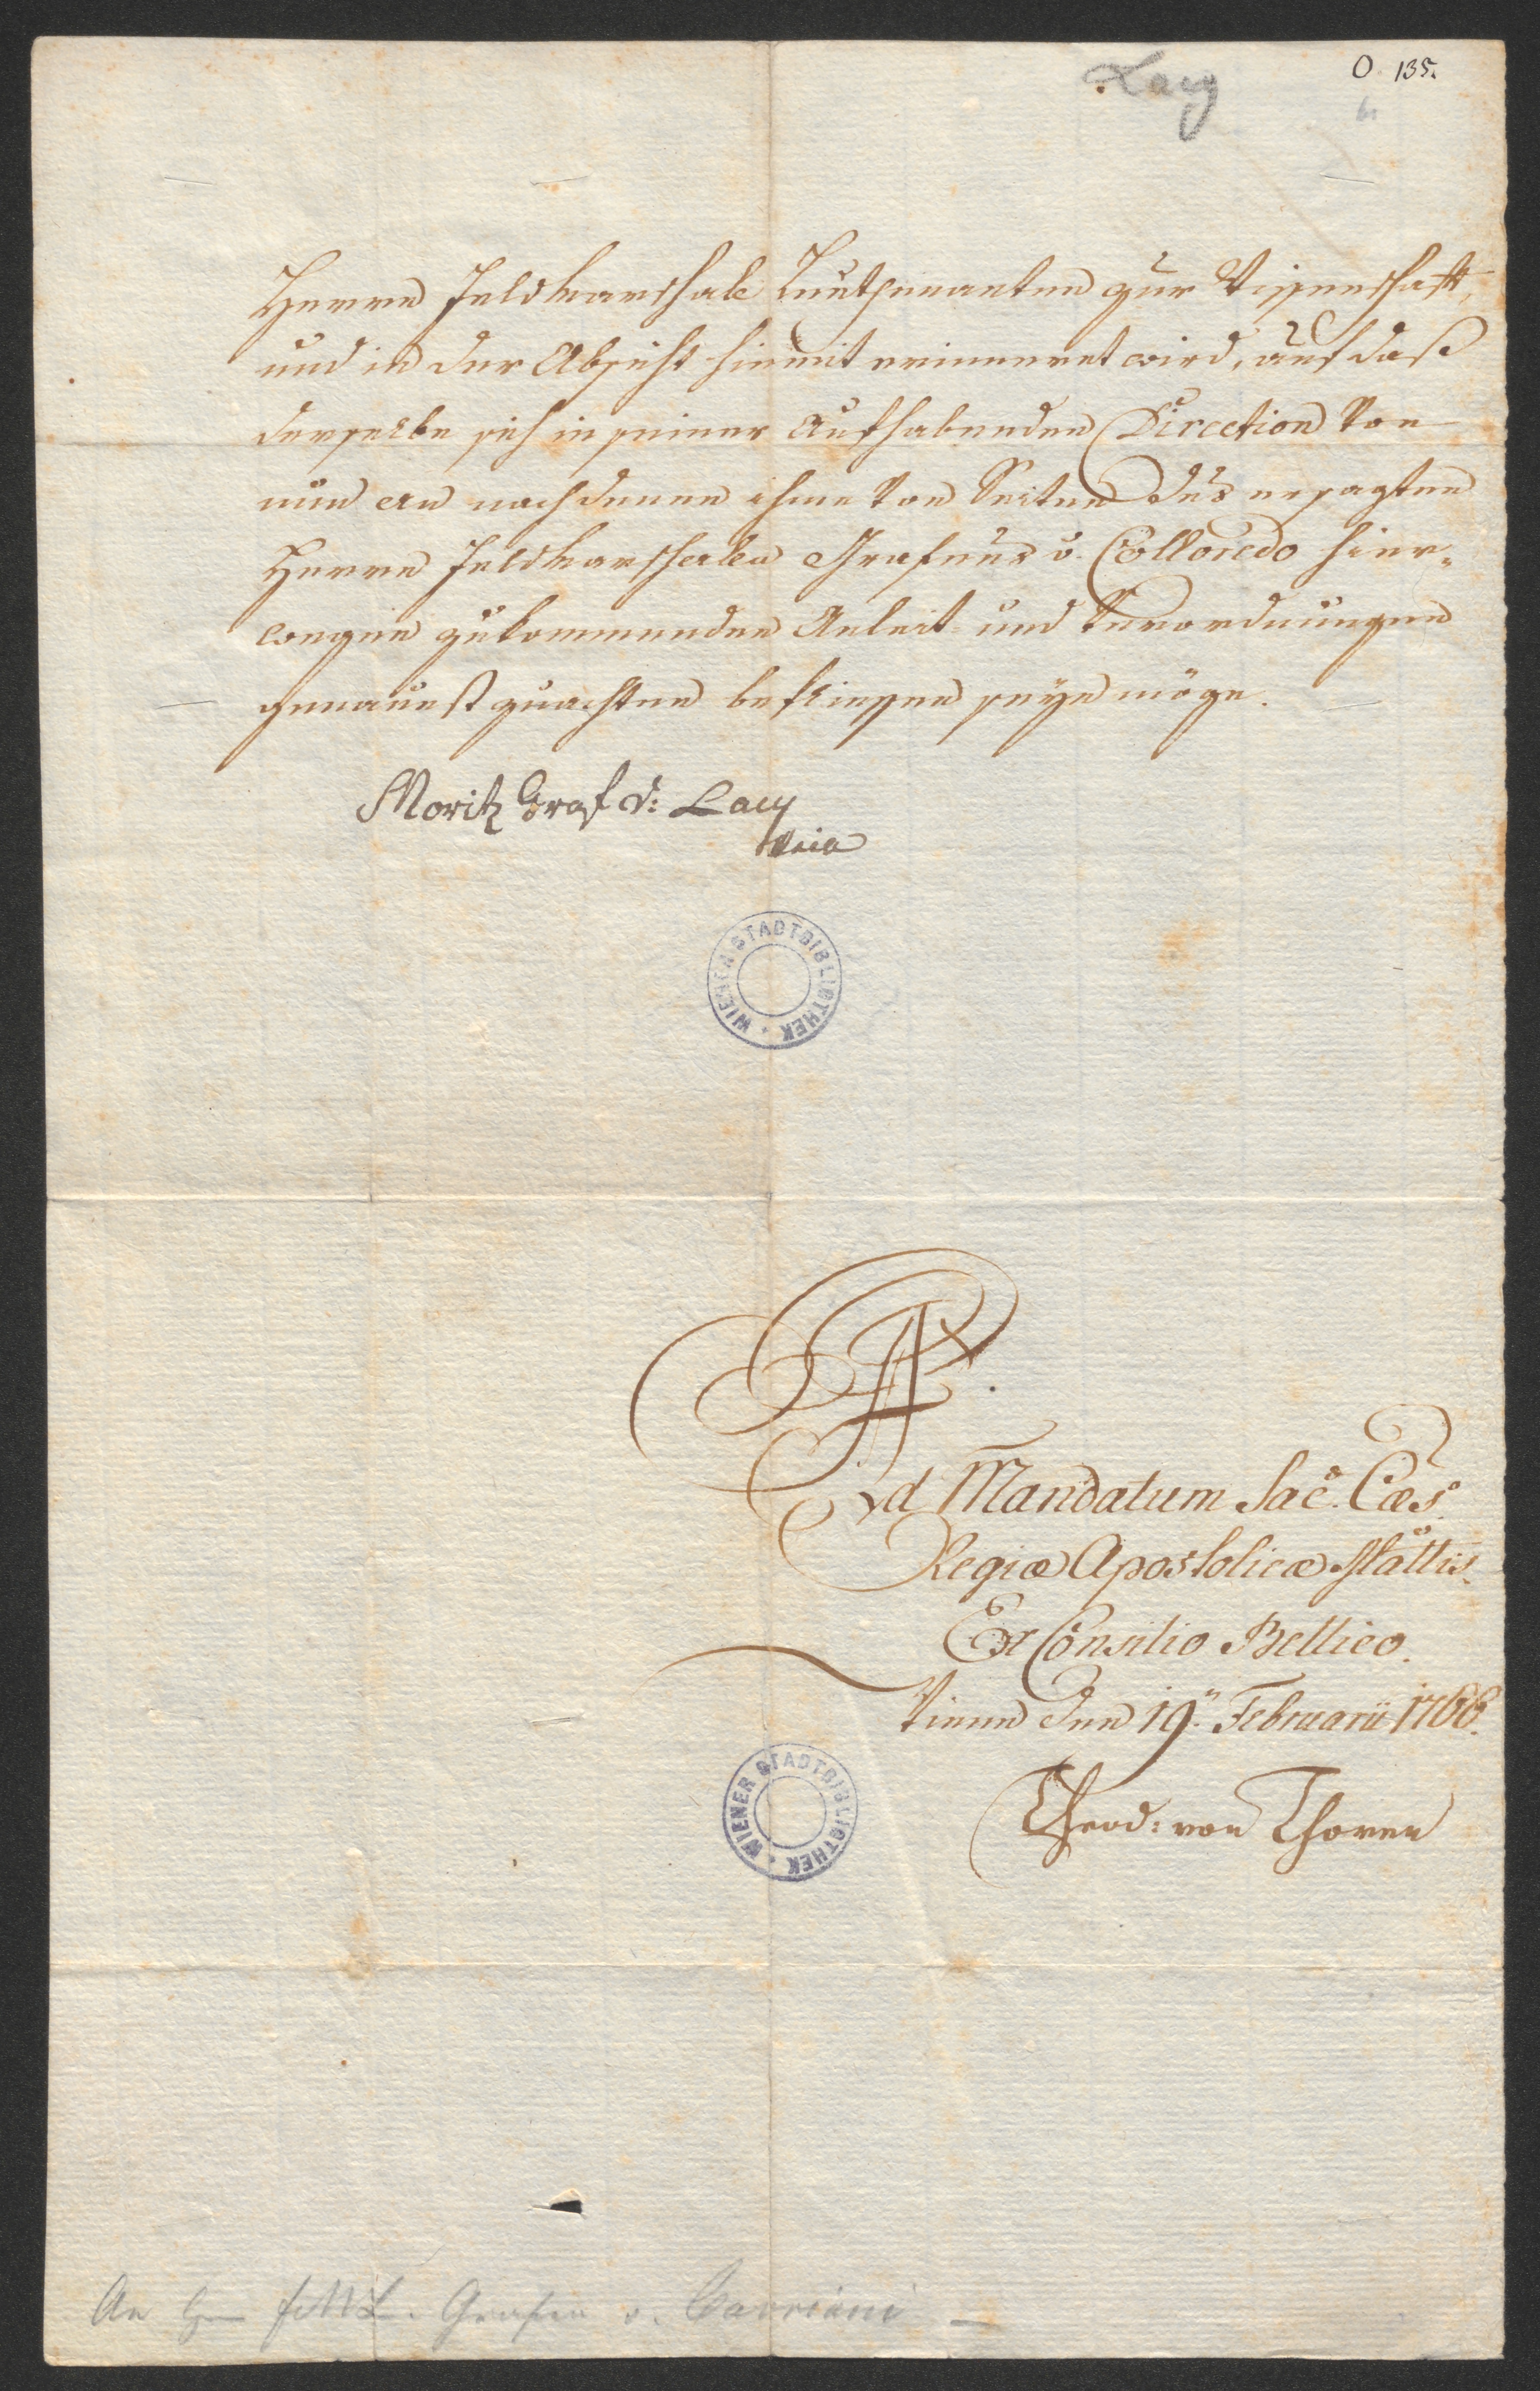 Lacy
O 135.
Herrn Feldmarschale Lieuthenanten zur Wissenschafft,
und in der Absicht hiemit erinneret wird, auf daß
derselbe sich in seiner aufhabenden Direction von
nun an nach denen ihme von Seiten des ersagten
Herrn Feldmarschalln Grafens v. Colloredo hier„
wegen zukommenden Anleit- und Verordnungen
genauest zu achten beflissen seyn möge.
Moritz Graf v: Lacy
WIENER STADTBIBLIOTHEK
Ad Mandatum Sac. Cæs.
Regiæ Apostolicæ Mattis.
Ex Consilio Bellico.
Wienn den 19.n Februarii 1766.
WIENER STADTBIBLIOTHEK
Theod: von Thoren
An H FML. Grafen v. Cavriani